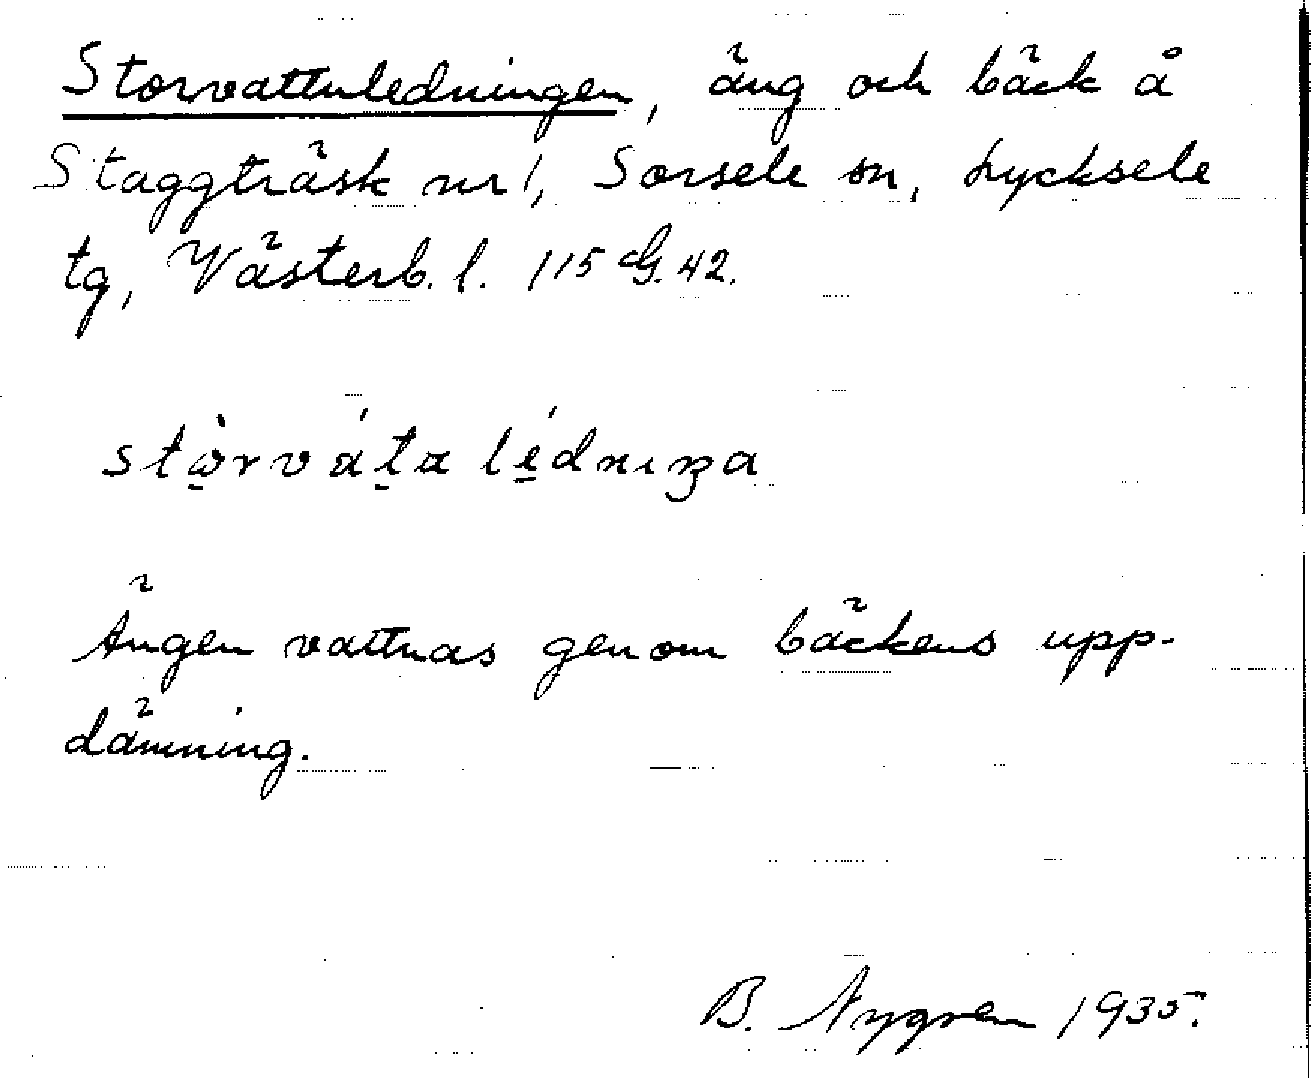 Storvattuledningen, äng och bäck å
Staggträsk nr 1, Sorsele sn, Lycksele
tg, Västerb. l. 115 G. 42.
Ängen vattnas genom bäckens upp-
dämning.
B. Nygren 1935.